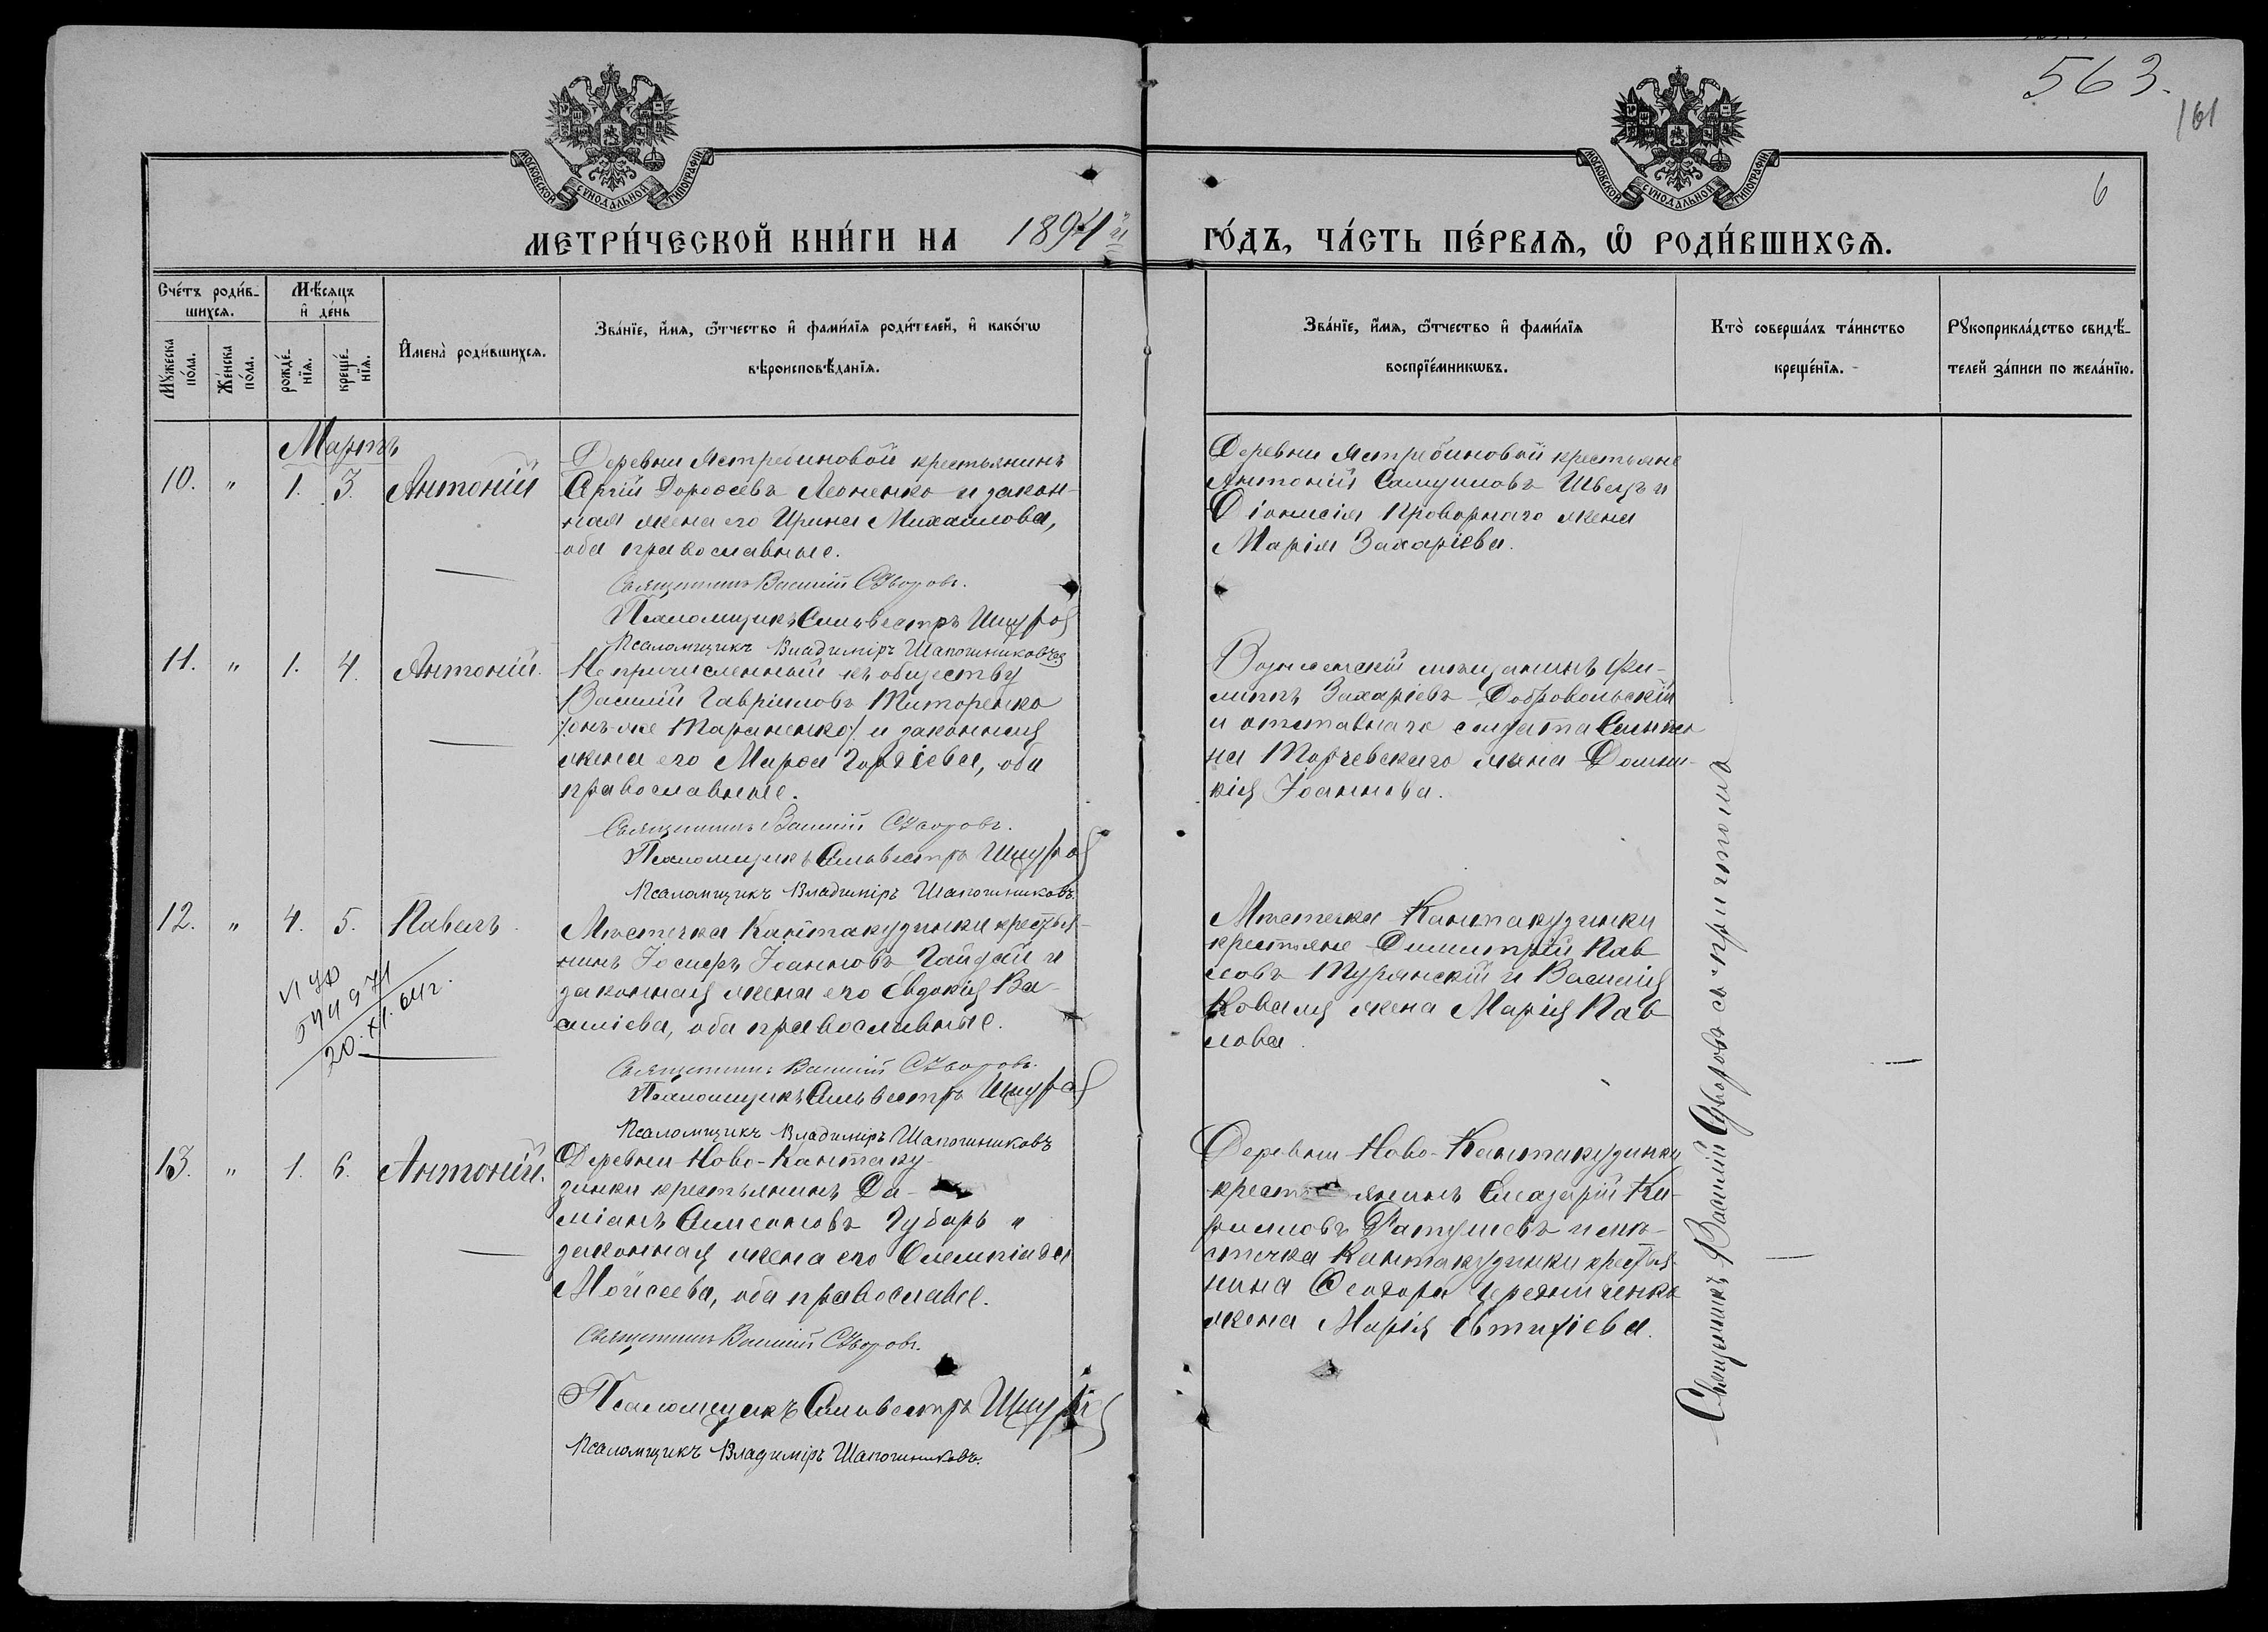 563.
161
6
МОСКОВСКОЙ СѴНОДАЛЬНОЙ ТИПОГРАФІИ.
МОСКОВСКОЙ СѴНОДАЛЬНОЙ ТИПОГРАФІИ.
МЕТРИ́ЧЕСКОЙ КНИ́ГИ НА 1894й ГО́ДЪ, ЧА́СТЬ ПЕ́РВАѦ, Ѽ РОДИ́ВШИХСѦ.
Сче́тъ роди́в-
шихсѧ.
Мꙋ́жеска
по́ла.
Же́нска
по́ла.
Мѣ́сѧцъ
и҆ де́нь
рожде́-
нїѧ.
креще́-
нїѧ.
И҆мена̀ роди́вшихсѧ.
Зва́нїе, и҆́мѧ, ѻ҆́тчество и҆ фами́лїѧ роди́телей, и҆ како́гѡ
вѣроисповѣ́данїѧ.
Зва́нїе, и҆́мѧ, ѻ҆́тчество и҆ фами́лїѧ
воспрїе́мникѡвъ.
Кто̀ соверша́лъ та́инство
креще́нїѧ.
Рꙋкоприкла́дство свидѣ́-
телей за́писи по жела́нїю.
Мартъ
10. " 1. 3. Антоній
Деревни Ястребиновой крестьянинъ
Сргій Дорофеевъ Леоненко и закон-
ная жена его Ирина Михаилова,
оба православные.
Священникъ Василій Суворовъ.
Псаломщикъ Сильвестръ
Псаломщикъ Владиміръ Шапошниковъ
Деревни Ястребиновой крестьяне
Антоній Самуиловъ Швецъ и
Діонисія Проворнаго жена
Марія Захаріева.
11. " 1. 4. Антоній.
Непричисленный къ обществу
Василій Гавріиловъ Титоренко
/онъ-же Тараненко/ и законная
жена его Марѳа Гордіева, оба
православные.
Священникъ Василій Суворовъ.
Псаломщикъ Сильвестръ
Псаломщикъ Владиміръ Шапошниковъ.
Вознесенскій мѣщанинъ Фи-
липпъ Захаріевъ Добровольскій
и отставнаго солдата
на Торчевскаго жена Домни-
кія Іоаннова.
12. " 4. 5. Павелъ.
20.XI.64г.
Мѣстечка Кантакузинки крестья-
нинъ Іосифъ Іоанновъ Гайдай и
законная жена его Евдокія Ва-
силіева, оба православные.
Священникъ Василій Суворовъ.
Псаломщикъ Сильвестръ
Псаломщикъ Владиміръ Шапошниковъ
Мѣстечка Кантакузинки
крестьяне Димитрій Пав-
ловъ Турянскій и Василія
Коваля жена Марія Пав-
лова.
13. " 1. 6. Антоній.
Деревни Ново-Кантаку-
зинки крестьянинъ Да-
міанъ Симеоновъ Губарь и
законная жена его Олимпіада
Мойсеева, оба православные.
Священникъ Василій Суворовъ.
Псаломщикъ Сильвестръ
Псаломщикъ Владиміръ Шапошниковъ.
Деревни Ново-Кантакузинки
крестьянинъ Елеазарій Ки-
рилловъ Ратушевъ и мѣ-
стечка Кантакузинки крестья-
нина Ѳеодора Чередниченка
жена Марія Евтихіева.
Священникъ Василій Суворовъ съ причтомъ